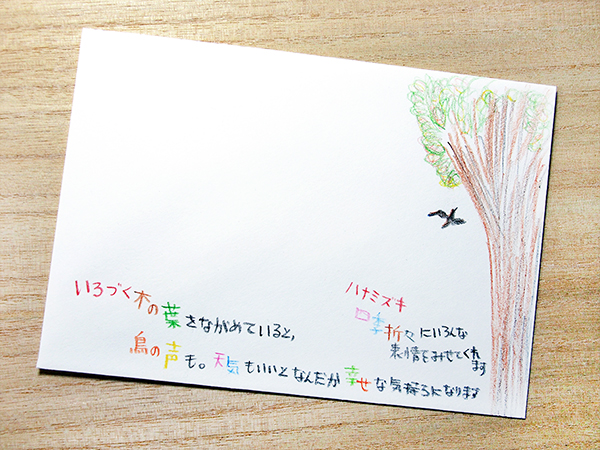 いろづく木の葉をながめていると、
鳥の声も。天気もいいとなんだか幸せな気持ちになります
ハナミズキ
四季折々にいろんな
表情をみせてくれ
ます